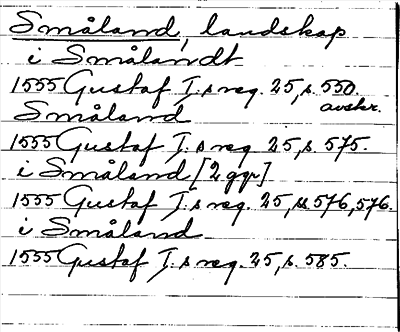 Småland, landskap
i Smålandt
1555 Gustaf I:s reg. 25, s. 550.
avskr.
Småland
1555 Gustaf I:s reg. 25, s. 575.
i Småland [2 ggr]
1555 Gustaf I:s reg. 25, ss. 576, 576.
i Småland
1555 Gustaf I:s reg. 25, s. 585.